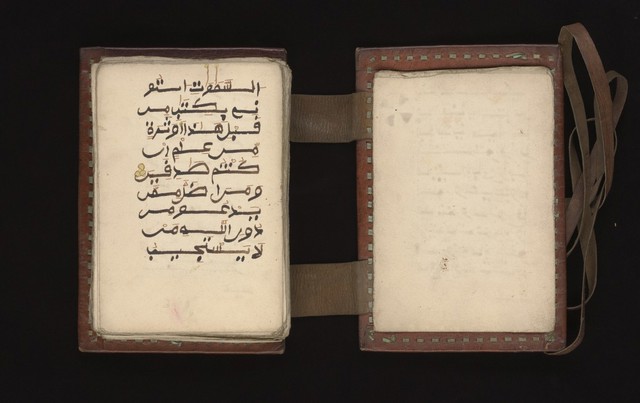 السموت ايتو
ني بكتب من
قبل هذا او اثرة
من علم ان
كنتم صدقين
ومن اضل ممن
يدعو من
دون الله من
لا يستجيب